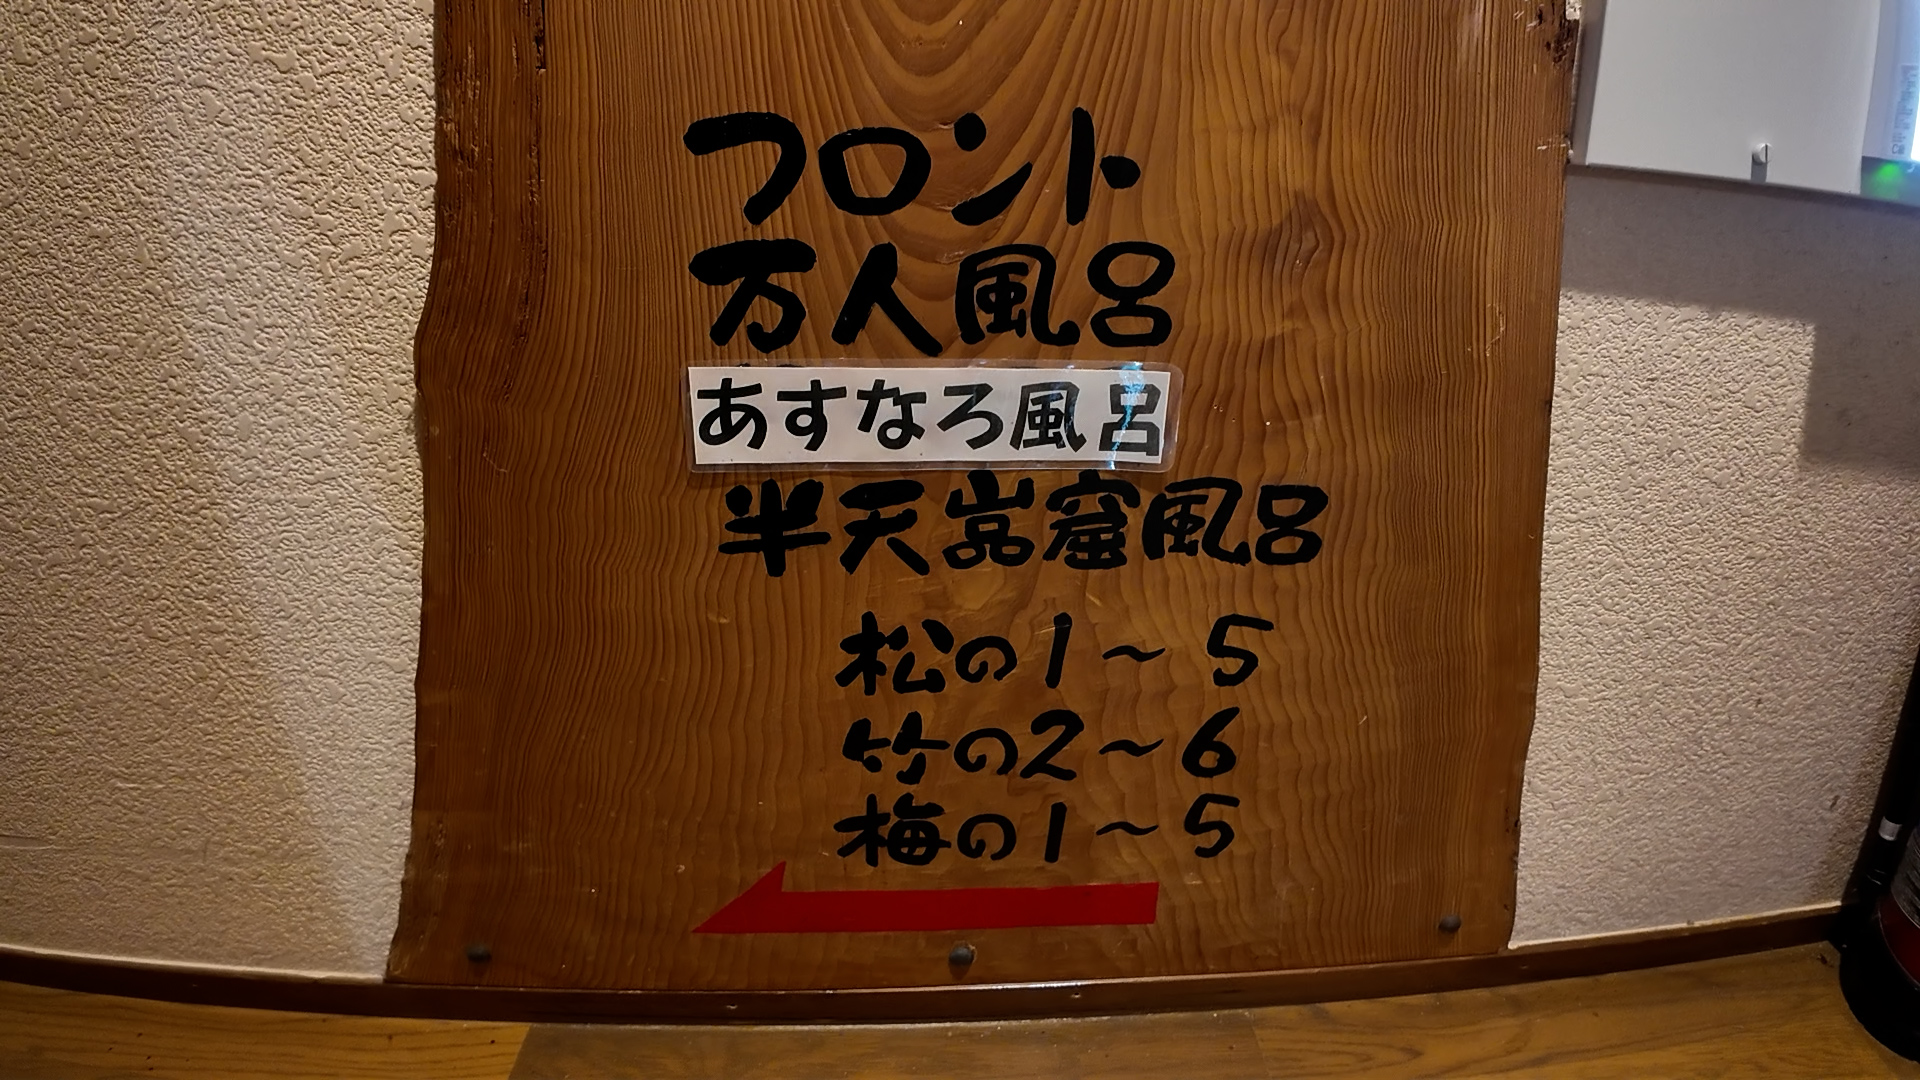 フロント
万人風呂
あすなろ風呂
半天岩窟風呂
松の1～5
竹の2～6
梅の1～5